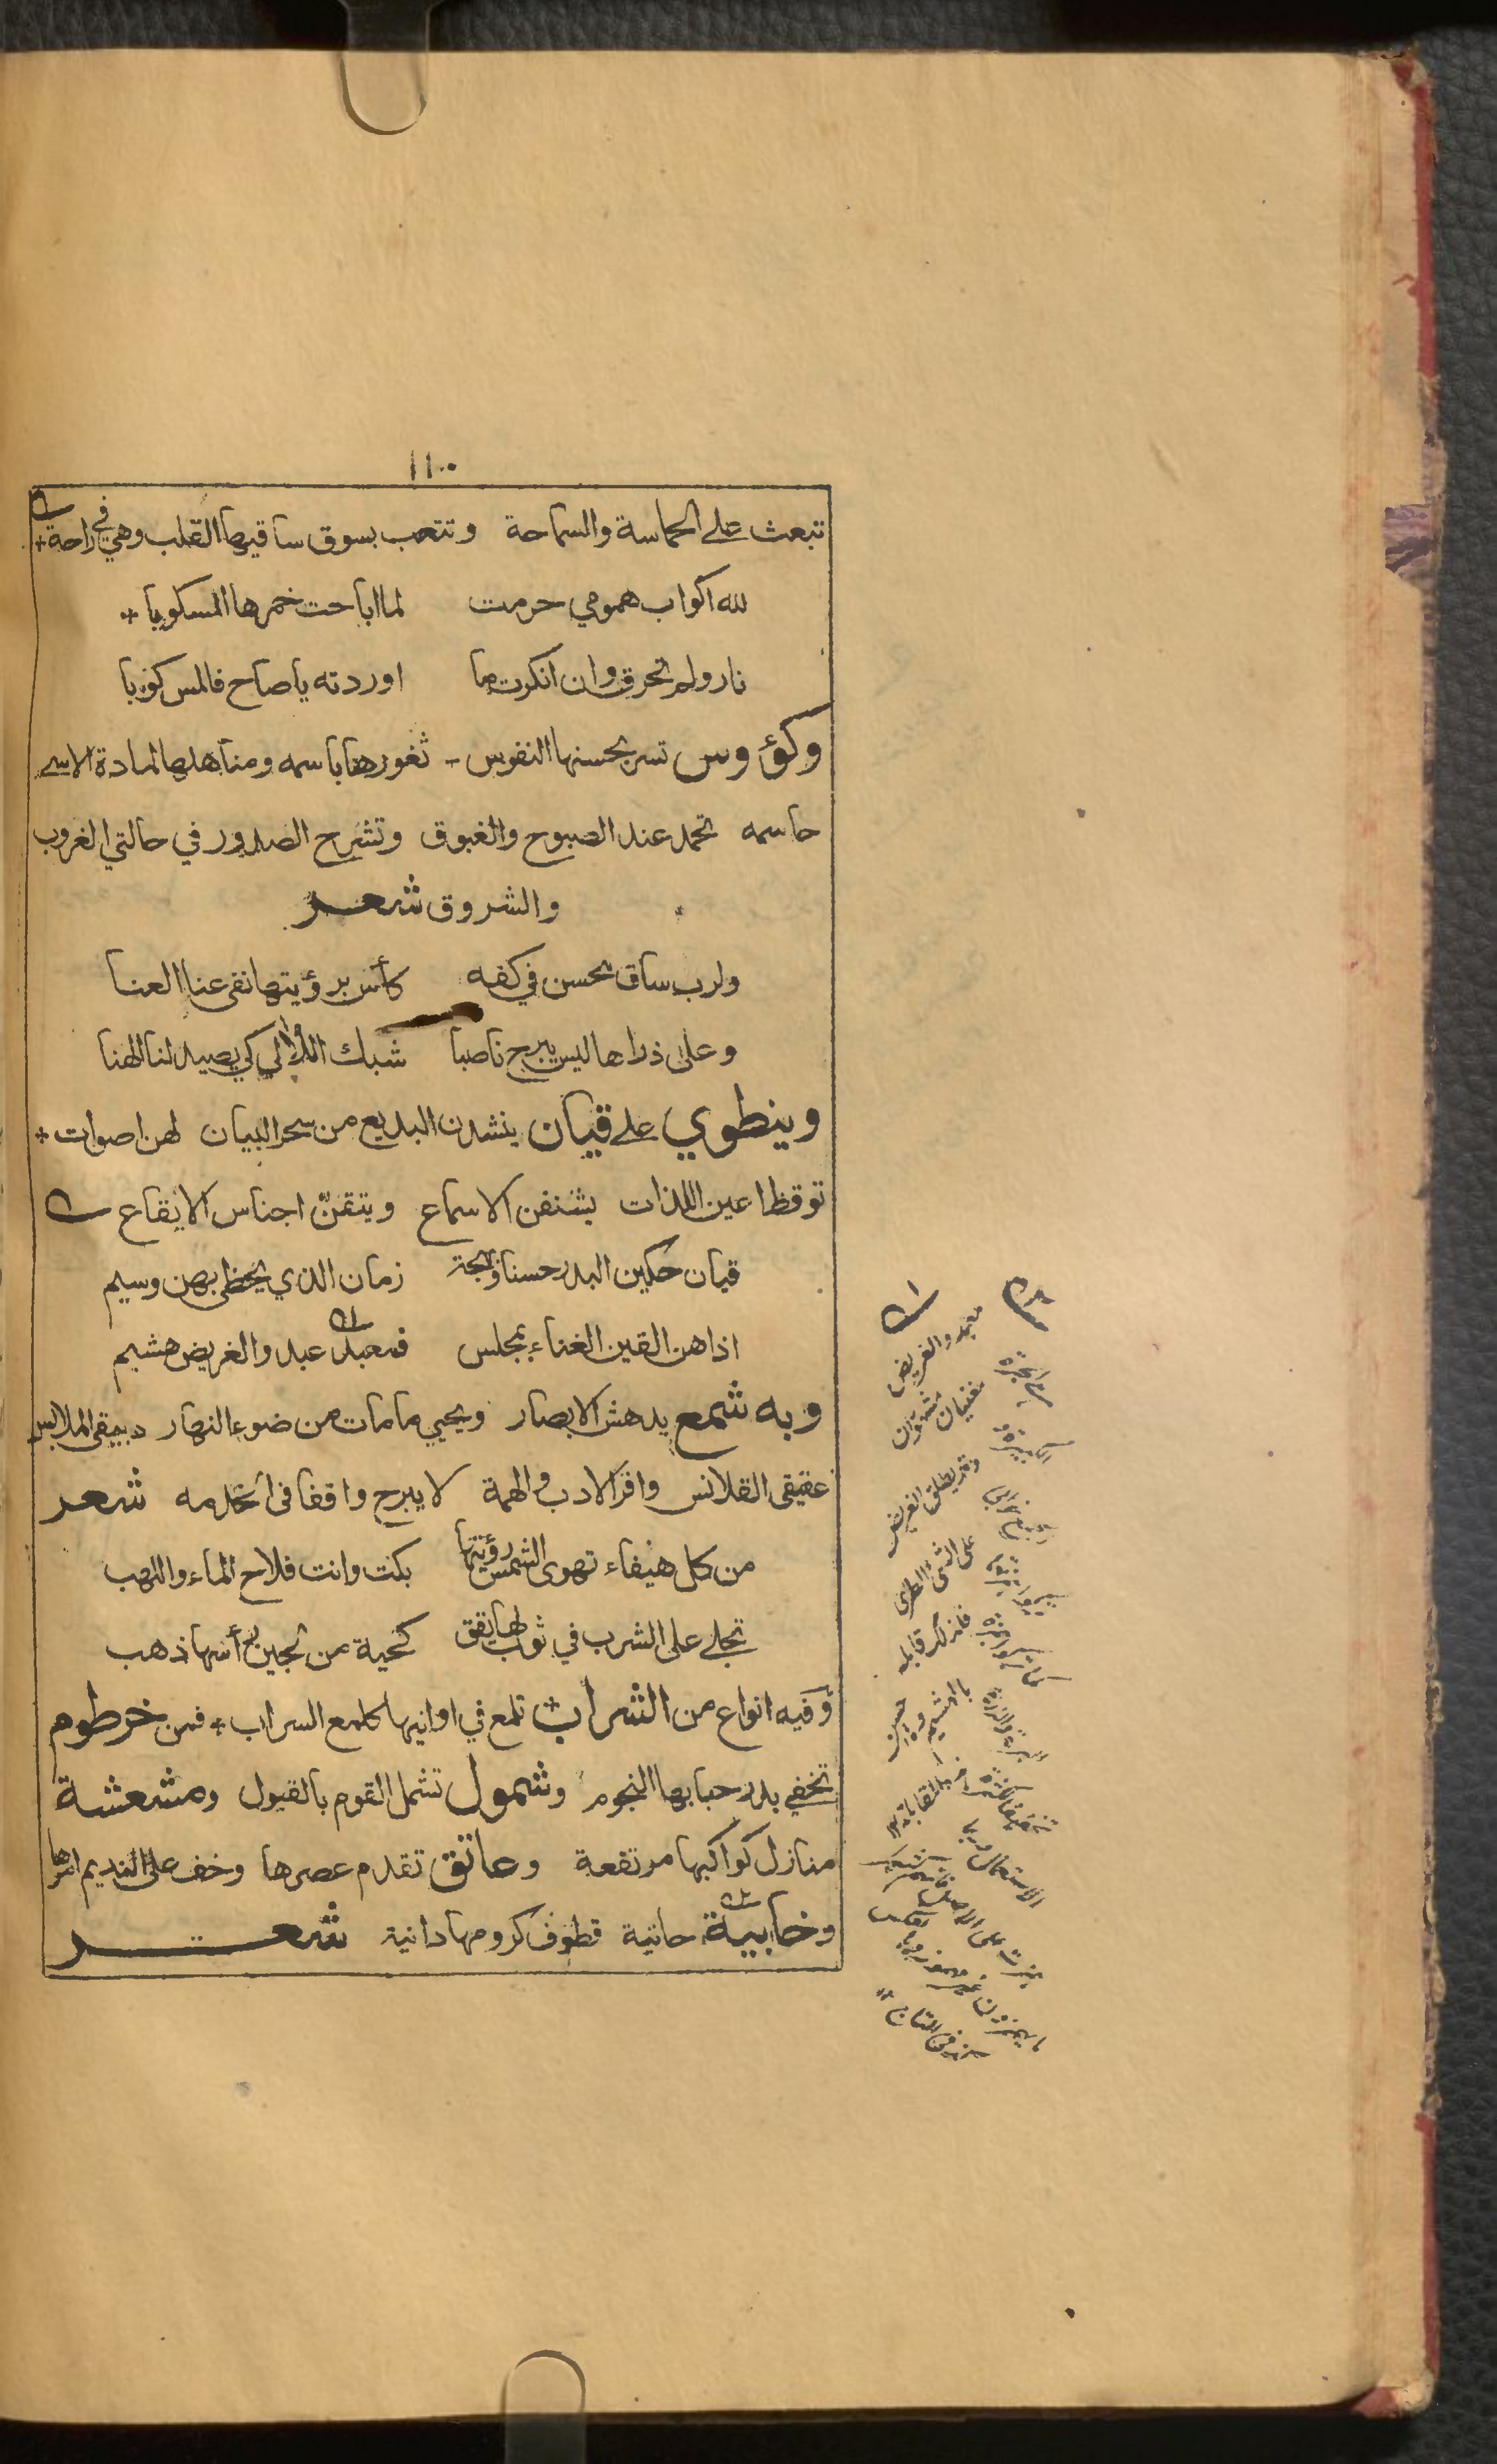 ١١٠
تبعث على الحماسة والسماحة وتتعب بسوق ساقيها القلب وهي في راحة *
لله اكواب همومي حرمت لما اباحت خمرها المسكوبا *
نار ولم تحرق وان انكرت ما اوردته يا صاح فالمس كوبا
وكؤوس تسر بحسنها النفوس - ثغورها باسمه ومناهلها لمادة الاسى
حاسمه تحمد عند الصبوح والغبوق وتشرح الصدور في حالتي الغروب
والشروق شعر
ولرب ساق يحسن في كفه كأس برؤيتها نفى عنا العنا
وعلى ذراها ليس يبرح ناصبا شبك اللألى كي يصيد لنا الهنا
وينطوي على قيان ينشدن البديع من سحر البيان لهن اصوات *
توقظ اعين اللذات يشنفن الاسماع ويتقنّ اجناس الايقاع
قيان حكين البدر حسنا وبهجة زمان الذي يحظى بهن وسيم
اذا هن القين الغناء بمجلس فمعبد عبد والغريض هشيم
وبه شمع يدهش الابصار ويحيي ما مات من ضوء النهار دبيقى الملابس
عقيقى القلانس وافر الادب والهمة لا يبرح واقفا فى الخدمه شعر
من كل هيفاء تهوى الشمس رؤيتها بكت وانت فلاح الماء واللهب
تجلى على الشرب في ثوب لها يقق كحية من لجين رأسها ذهب
وفيه انواع من الشراب تلمع في اوانيها كلمع السراب * فمن خرطوم
تخفي بدر حبابها النجوم وشمول تشمل القوم بالقبول ومشعشة
منازل كواكبها مرتفعة وعاتق تقدم عصرها وخف على النديم امرها
وخابية حانية قطوف كرومها دانية شعر
معبد والغريض
مغنيان مشهوران
وقد يطلق الغريض
على الشئ الطرى
فلذلك قابله